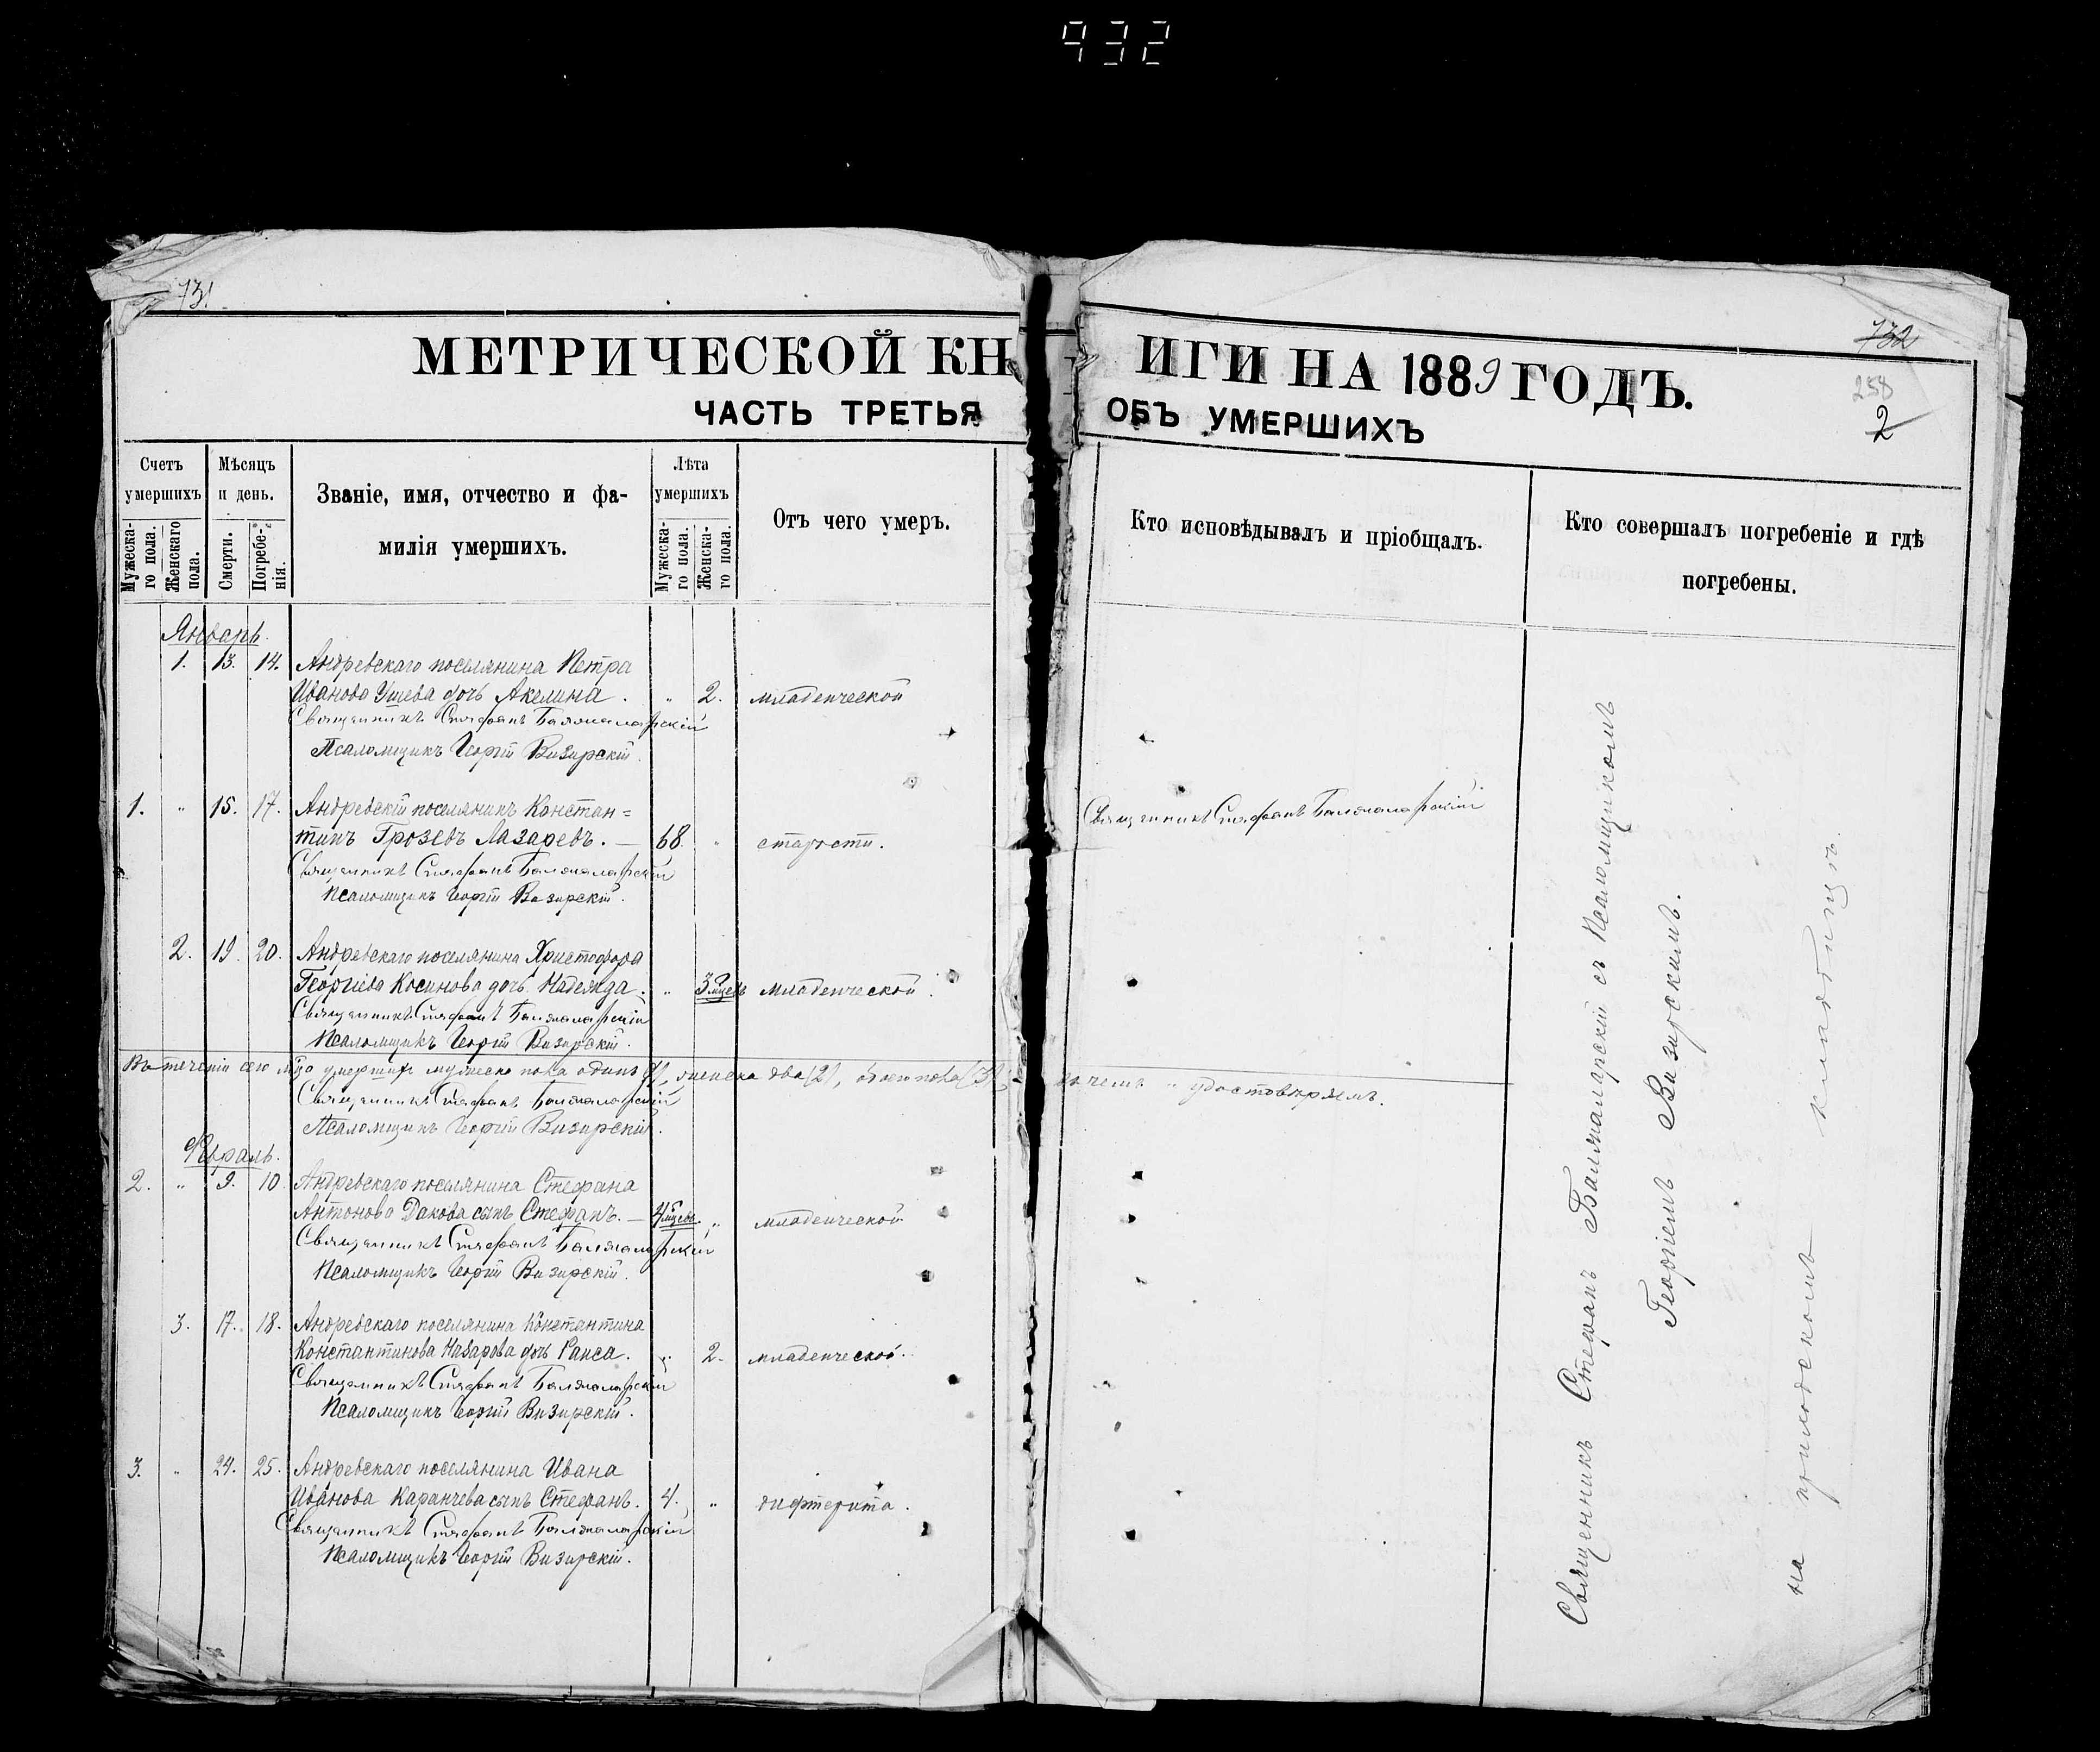 932
731
732
258
2
МЕТРИЧЕСКОЙ КНИГИ НА 1889 ГОДЪ.
ЧАСТЬ ТРЕТЬЯ ОБЪ УМЕРШИХЪ
Счетъ умершихъ
Мужеска-го пола.
Женскаго пола.
Мѣсяцъ и день.
Смерти.
Погребе-нія.
Званіе, имя, отчество и фа-
милія умершихъ.
Лѣта умершихъ
Мужеска-го пола.
Женска-го пола.
Отъ чего умеръ.
Кто исповѣдывалъ и пріобщалъ.
Кто совершалъ погребеніе и гдѣ
погребены.
Январь.
1. 13. 14. Андревскаго поселянина Петра
Иванова дочь Акелина. " 2. младенческой
Священникъ Стефанъ Балжаларскій
Псаломщикъ Георгій Визирскій.
1. " 15. 17. Андревскій поселянинъ Констан=
тинъ Грозевъ Лазаревъ. — 68. " старости. Священникъ Стефанъ Балжаларскій
Священникъ Стефанъ Балжаларскій
Псаломщикъ Георгій Визирскій.
2. 19. 20. Андревскаго поселянина Христофора
Георгіева Косинова дочь Надежда. " 3 мцевъ младенческой.
Священникъ Стефанъ Балжаларскій
Псаломщикъ Георгій Визирскій.
Въ теченіи сего умершихъ мужеска пола одинъ (1), женска два (2), обоего пола (3), въ чемъ " удостовѣряемъ.
Священникъ Стефанъ Балжаларскій
Псаломщикъ Георгій Визирскій.
Февраль.
2. " 9. 10. Андревскаго поселянина Стефана
Антонова Дакова сынъ Стефанъ. — 4 мцевъ " младенческой
Священникъ Стефанъ Балжаларскій
Псаломщикъ Георгій Визирскій.
3. 17. 18. Андревскаго поселянина Константина
Константинова Назарова дочь Раиса. " 2. младенческой.
Священникъ Стефанъ Балжаларскій
Псаломщикъ Георгій Визирскій.
3. " 24. 25. Андревскаго поселянина Ивана
Иванова Каранчева сынъ Стефанъ. 4. " дифтерита.
Священникъ Стефанъ Балжаларскій
Псаломщикъ Георгій Визирскій.
Священникъ Стефанъ Балжаларскій съ Псаломщикомъ
Георгіемъ Визирскимъ.
на приходскомъ кладбищѣ.